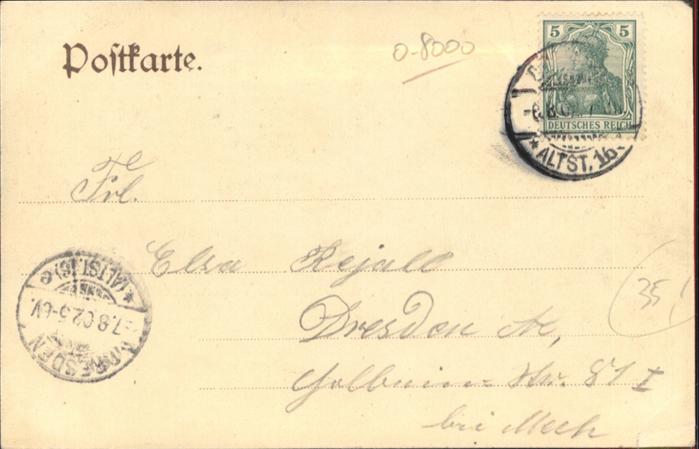 Postkarte.
0-8000
5 5
DEUTSCHES REICH
-6.8.02
* ALTST. 16
Frl.
Elsa Rejall
Dresden A,
Str. 81 I
bei
35
DRESDEN
-7.8.02.5-6V.
* (ALTST. 16) e